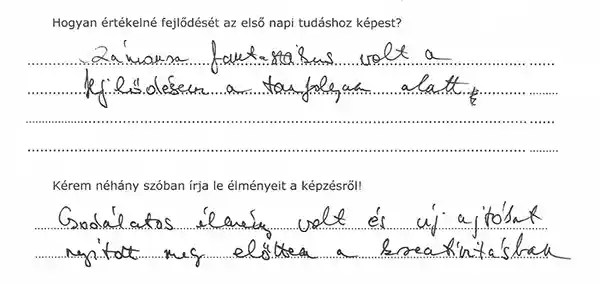 Hogyan értékelné fejlődését az első napi tudáshoz képest?
Számomra fantasztikus volt a
fejlődésem a tanfolyam alatt
Kérem néhány szóban írja le élményeit a képzésről!
Csodálatos élmény volt és új ajtókat
nyitott meg előttem a kreativitásban